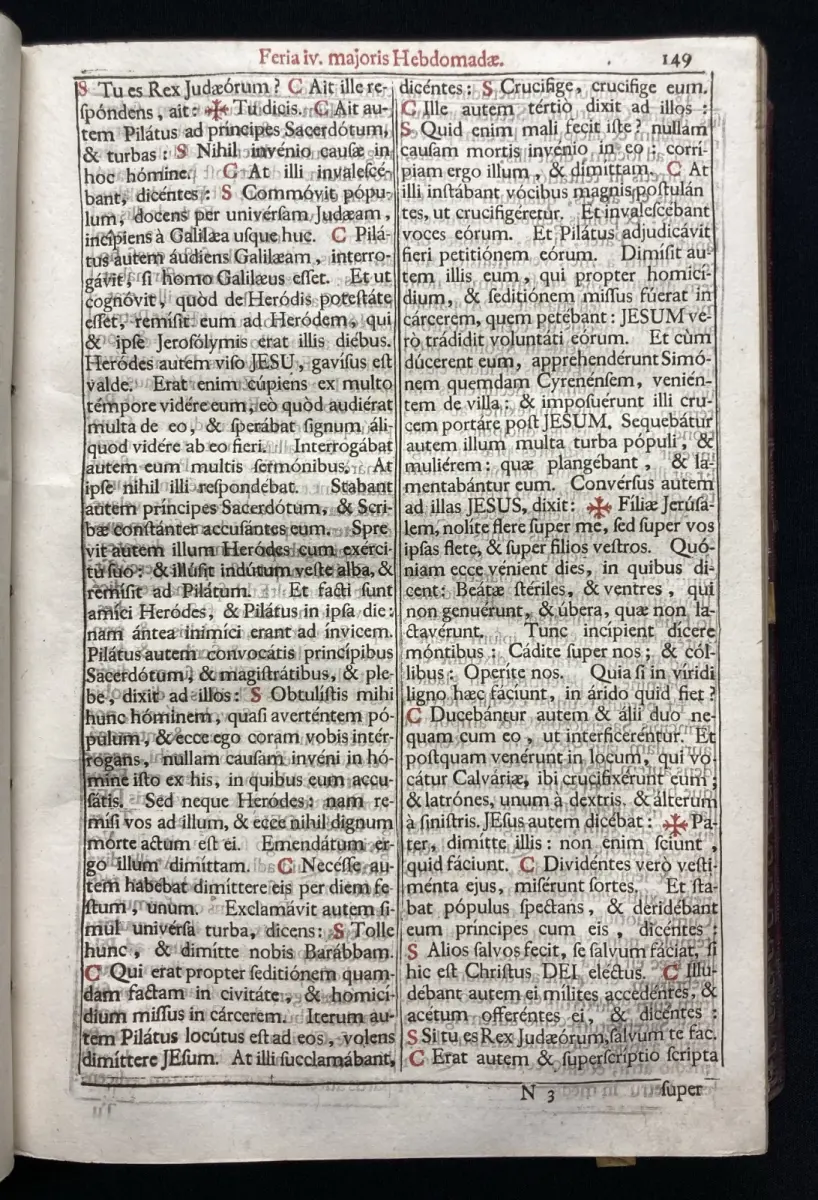 Feria iv. majoris Hebdomadæ. 149
S Tu es Rex Judæórum? C Ait ille re-
ſpóndens, ait: ✠ Tu dicis. C Ait au-
tem Pilátus ad príncipes Sacerdótum,
& turbas: S Nihil invénio cauſæ in
hoc hómine. C At illi invaleſcé-
bant, dicéntes: S Commóvit pópu-
lum, docens per univérſam Judæam,
incípiens à Galilæa uſque huc. C Pilá-
tus autem áudiens Galilæam, interro-
gávit, ſi homo Galilæus eſſet. Et ut
cognóvit, quòd de Heródis poteſtáte
eſſet, remíſit eum ad Heródem, qui
& ipſe Jeroſólymis erat illis diébus.
Heródes autem viſo JESU, gavíſus eſt
valde. Erat enim cúpiens ex multo
témpore vidére eum, eò quòd audiérat
multa de eo, & ſperábat ſignum áli-
quod vidére ab eo fieri. Interrogábat
autem eum multis ſermónibus. At
ipſe nihil illi reſpondébat. Stabant
autem príncipes Sacerdótum, & Scri-
bæ conſtánter accuſántes eum. Spre
vit autem illum Heródes cum exérci
tu ſuo: & illúſit indútum veſte alba, &
remíſit ad Pilátum. Et facti ſunt
amíci Heródes, & Pilátus in ipſa die:
nam ántea inimíci erant ad ínvicem.
Pilátus autem convocátis princípibus
Sacerdótum, & magiſtrátibus, & ple-
be, dixit ad illos: S Obtulíſtis mihi
hunc hóminem, quaſi averténtem pó-
pulum, & ecce ego coram vobis intér-
rogans, nullam cauſam invéni in hó-
mine iſto ex his, in quibus eum accu-
ſátis. Sed neque Heródes: nam re-
míſi vos ad illum, & ecce nihil dignum
morte actum eſt ei. Emendátum er-
go illum dimíttam. C Necéſſe au-
tem habébat dimíttere eis per diem fe
ſtum, unum. Exclamávit autem ſi-
mul univérſa turba, dicens: S Tolle
hunc, & dimítte nobis Barábbam.
C Qui erat propter ſeditiónem quam-
dam factam in civitáte, & homicí
dium miſſus in cárcerem. Iterum au-
tem Pilátus locútus eſt ad eos, volens
dimíttere JEſum. At illi ſucclamábant,
dicéntes: S Crucifíge, crucifíge eum.
C Ille autem tértiò dixit ad illos:
S Quid enim mali fecit iſte? nullam
cauſam mortis invénio in eo: corrí-
piam ergo illum, & dimíttam. C At
illi inſtábant vócibus magnis poſtulán
tes, ut crucifigéretur. Et invaleſcébant
voces eórum. Et Pilátus adjudicávit
fieri petitiónem eórum. Dimíſit au-
tem illis eum, qui propter homicí-
dium, & ſeditiónem miſſus fúerat in
cárcerem, quem petébant: JESUM ve-
rò trádidit voluntáti eórum. Et cùm
dúcerent eum, apprehendérunt Simó-
nem quemdam Cyrenénſem, venién-
tem de villa: & impoſuérunt illi cru-
cem portáre poſt JESUM. Sequebátur
autem illum multa turba pópuli, &
muliérem: quæ plangébant, & la-
mentabántur eum. Convérſus autem
ad illas JESUS, dixit: ✠ Fíliæ Jerúſa-
lem, nolíte flere ſuper me, ſed ſuper vos
ipſas flete, & ſuper filios veſtros. Quó-
niam ecce vénient dies, in quibus di-
cent: Beátæ ſtériles, & ventres, qui
non genuérunt, & úbera, quæ non la-
ctavérunt. Tunc incípient dícere
móntibus: Cádite ſuper nos; & cól-
libus: Operíte nos. Quia ſi in víridi
ligno hæc fáciunt, in árido quid fiet?
C Ducebántur autem & álii duo ne-
quam cum eo, ut interficeréntur. Et
poſtquam venérunt in locum, qui vo
cátur Calváriæ, ibi crucifixérunt eum;
& latrónes, unum à dextris, & álterum
à ſiniſtris. JEſus autem dicébat: ✠ Pa-
ter, dimítte illis: non enim ſciunt,
quid fáciunt. C Dividéntes verò veſti-
ménta ejus, miſérunt ſortes. Et ſta-
bat pópulus ſpectans, & deridébant
eum príncipes cum eis, dicéntes:
S Alios ſalvos fecit, ſe ſalvum fáciat, ſi
hic eſt Chriſtus DEI eléctus. C Illu-
débant autem ei mílites accedéntes, &
acétum offeréntes ei, & dicéntes:
S Si tu es Rex Judæórum, ſalvum te fac.
C Erat autem & ſuperſcríptio ſcripta
N 3 ſuper